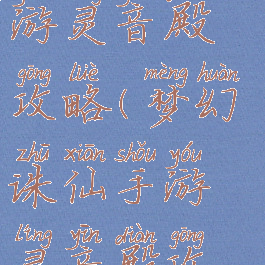 游灵音殿
gōng lüè mèng huàn
攻略(梦幻
zhū xiān shǒu yóu
诛仙手游
líng yīn diàn gōng
灵音殿攻